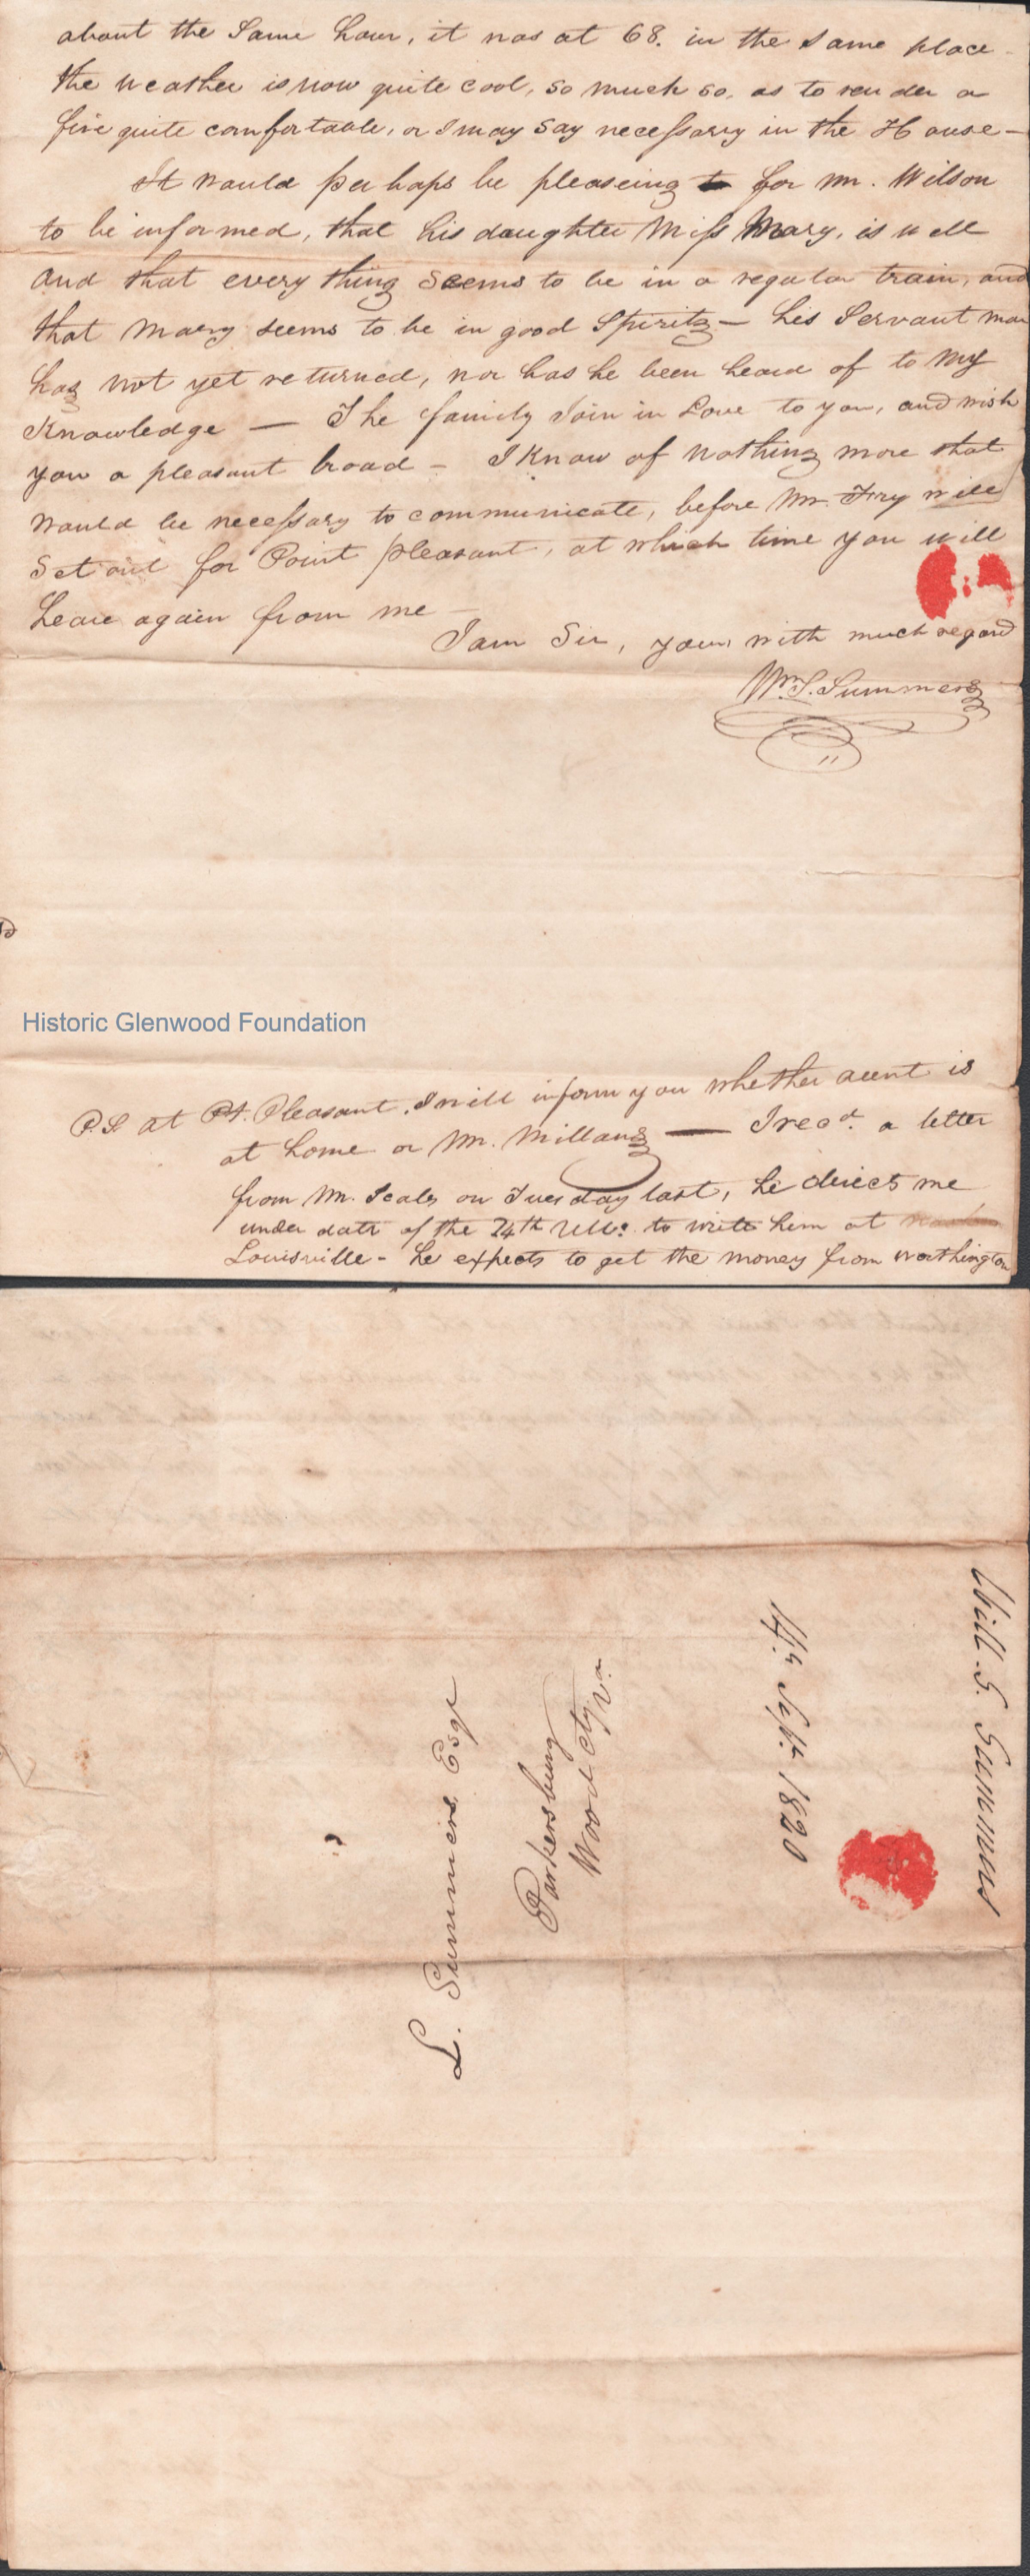 about the Same hour, it was at 68. in the same place -
the weather is now quite cool, so much so, as to render a
fire quite comfortable, or I may say necessary in the House -
It would perhaps be pleaseing to for Mr. Wilson
to be informed, that his daughter Miss Mary, is well
and that every thing seems to be in a regular train, and
that Mary seems to be in good Spirits - his Servant man
has not yet returned, nor has he been heard of to my
Knowledge — The family Join in Love to you, and wish
you a pleasant - I Know of nothing more that
would be necessary to communicate, before Mr. Fry will
Set out for Point pleasant, at which time you will
heare again from me -
I am Sir, your, with much regard
Wm. S. Summers
Historic Glenwood Foundation
P.S. at Pt. Pleasant. I will inform you whether aunt is
at home or Mr. — I recd. a letter
from Mr. Scales on Tuesday last, he direct me
under date of the 24th Ulto. to write him at
Louisville - he expects to get the money from Worthington
Will. S. Summers
Sept. 1820
L. Summers Esqr
Parkersburg
Wood Cty Va.